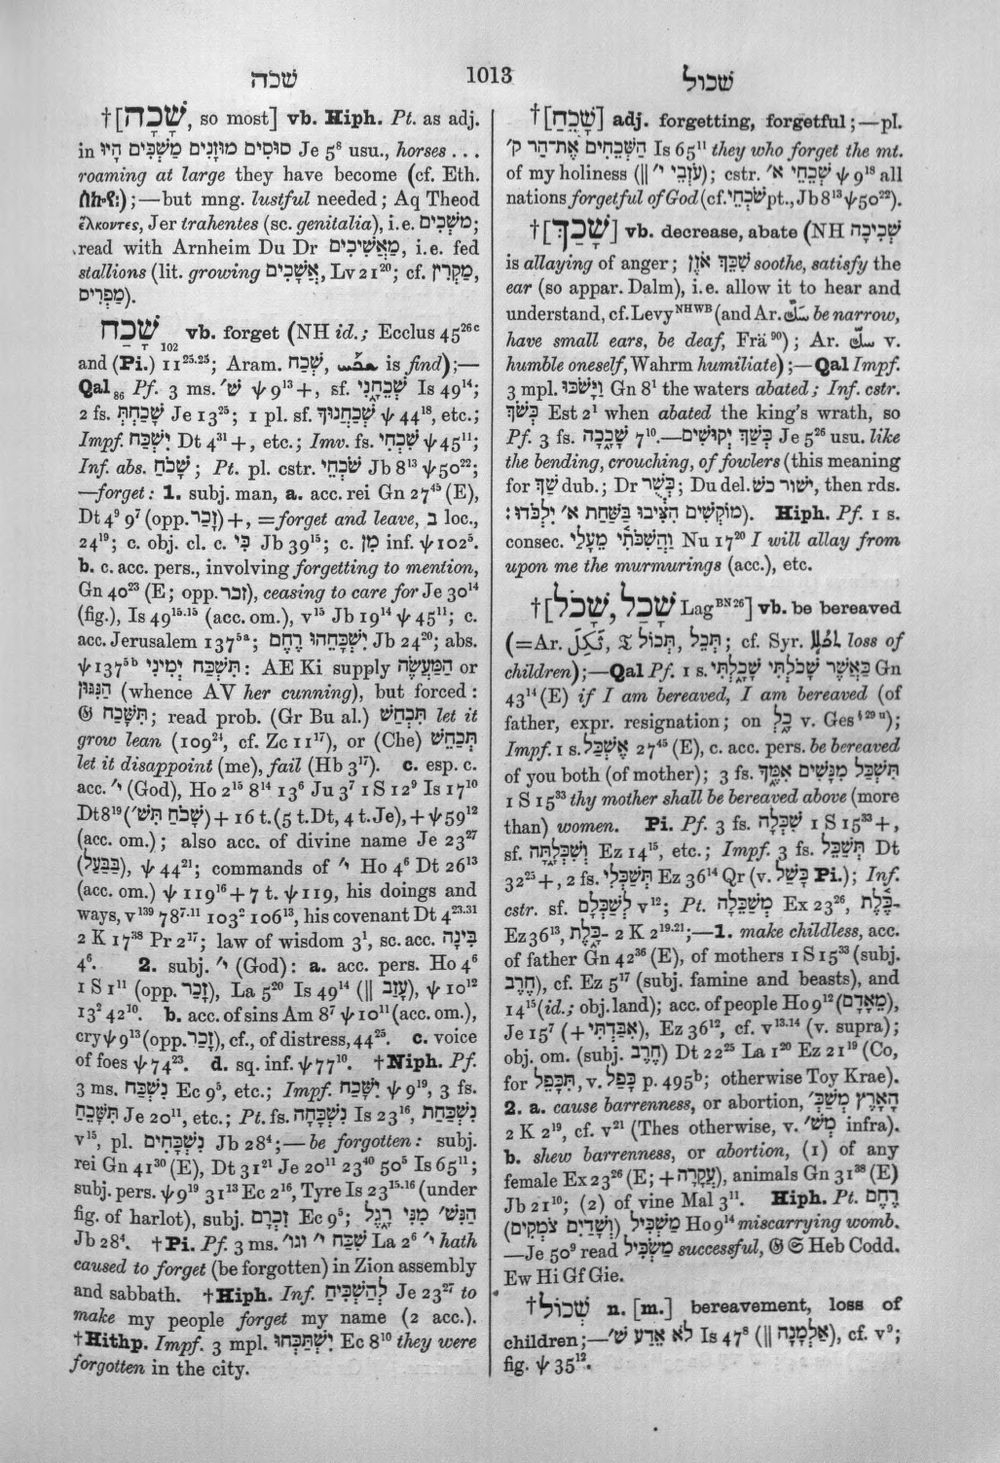 שכה
1013
שכול
†[שָׁכָה, so most] vb. Hiph. Pt. as adj.
in סוּסִים מוּזָנִים מַשְׁכִּים הָיוּ Je 5⁸ usu., horses . . .
roaming at large they have become (cf. Eth.
);—but mng. lustful needed; Aq Theod
ἕλκοντες, Jer trahentes (sc. genitalia), i.e. מֹשְׁכִים;
read with Arnheim Du Dr מַאֲשִׁיכִים, i.e. fed
stallions (lit. growing אֲשָׁכִים, Lv 21²⁰; cf. מַקְרִן,
מַפְרִים).
שָׁכַח 102 vb. forget (NH id.; Ecclus 45²⁶ᶜ
and (Pi.) 11²⁵·²⁵; Aram. שְׁכַח, is find);—
Qal 86 Pf. 3 ms. שׁ׳ ψ 9¹³ +, sf. שְׁכֵחָנִי Is 49¹⁴;
2 fs. שָׁכַחַתְּ Je 13²⁵; 1 pl. sf. שְׁכַחֲנוּךָ ψ 44¹⁸, etc.;
Impf. יִשְׁכַּח Dt 4³¹ +, etc.; Imv. fs. שִׁכְחִי ψ 45¹¹;
Inf. abs. שָׁכֹחַ; Pt. pl. cstr. שֹׁכְחֵי Jb 8¹³ ψ 50²²;
—forget: 1. subj. man, a. acc. rei Gn 27⁴⁵ (E),
Dt 4⁹ 9⁷ (opp. זָכַר) +, = forget and leave, ב loc.,
24¹⁹; c. obj. cl. c. כִּי Jb 39¹⁵; c. מִן inf. ψ 102⁵.
b. c. acc. pers., involving forgetting to mention,
Gn 40²³ (E; opp. זכר), ceasing to care for Je 30¹⁴
(fig.), Is 49¹⁵·¹⁵ (acc. om.), v¹⁵ Jb 19¹⁴ ψ 45¹¹; c.
acc. Jerusalem 137⁵ᵃ; יִשְׁכָּחֵהוּ רֶחֶם Jb 24²⁰; abs.
ψ 137⁵ᵇ תִּשְׁכַּח יְמִינִי: AE Ki supply הַמַּעֲשֶׂה or
הַנִּגּוּן (whence AV her cunning), but forced:
𝔊 תִּשָּׁכַח; read prob. (Gr Bu al.) תִּכְחַשׁ let it
grow lean (109²⁴, cf. Zc 11¹⁷), or (Che) תְּכַחֵשׁ
let it disappoint (me), fail (Hb 3¹⁷). c. esp. c.
acc. י׳ (God), Ho 2¹⁵ 8¹⁴ 13⁶ Ju 3⁷ 1 S 12⁹ Is 17¹⁰
Dt 8¹⁹ (שָׁכֹחַ תִּשׁ׳) + 16 t. (5 t. Dt, 4 t. Je), + ψ 59¹²
(acc. om.); also acc. of divine name Je 23²⁷
(בַּבַּעַל), ψ 44²¹; commands of י׳ Ho 4⁶ Dt 26¹³
(acc. om.) ψ 119¹⁶ + 7 t. ψ 119, his doings and
ways, v¹³⁹ 78⁷·¹¹ 103² 106¹³, his covenant Dt 4²³·³¹
2 K 17³⁸ Pr 2¹⁷; law of wisdom 3¹, sc. acc. בִּינָה
4⁶. 2. subj. י׳ (God): a. acc. pers. Ho 4⁶
1 S 1¹¹ (opp. זָכַר), La 5²⁰ Is 49¹⁴ (‖ עָזַב), ψ 10¹²
13² 42¹⁰. b. acc. of sins Am 8⁷ ψ 10¹¹ (acc. om.),
cry ψ 9¹³ (opp. זָכַר), cf., of distress, 44²⁵. c. voice
of foes ψ 74²³. d. sq. inf. ψ 77¹⁰. †Niph. Pf.
3 ms. נִשְׁכַּח Ec 9⁵, etc.; Impf. יִשָּׁכַח ψ 9¹⁹, 3 fs.
תִּשָּׁכֵחַ Je 20¹¹, etc.; Pt. fs. נִשְׁכָּחָה Is 23¹⁶, נִשְׁכַּחַת
v¹⁵, pl. נִשְׁכָּחִים Jb 28⁴;—be forgotten: subj.
rei Gn 41³⁰ (E), Dt 31²¹ Je 20¹¹ 23⁴⁰ 50⁵ Is 65¹¹;
subj. pers. ψ 9¹⁹ 31¹³ Ec 2¹⁶, Tyre Is 23¹⁵·¹⁶ (under
fig. of harlot), subj. זִכְרָם Ec 9⁵; הַנִּשׁ׳ מִנִּי רָגֶל
Jb 28⁴. †Pi. Pf. 3 ms. שִׁכַּח י׳ וגו׳ La 2⁶ י׳ hath
caused to forget (be forgotten) in Zion assembly
and sabbath. †Hiph. Inf. לְהַשְׁכִּיחַ Je 23²⁷ to
make my people forget my name (2 acc.).
†Hithp. Impf. 3 mpl. יִשְׁתַּכְּחוּ Ec 8¹⁰ they were
forgotten in the city.
†[שָׁכֵחַ] adj. forgetting, forgetful;—pl.
הַשְּׁכֵחִים אֶת־הַר ק׳ Is 65¹¹ they who forget the mt.
of my holiness (‖ עֹזְבֵי י׳); cstr. שְׁכֵחֵי א׳ ψ 9¹⁸ all
nations forgetful of God (cf. שֹׁכְחֵי pt., Jb 8¹³ ψ 50²²).
†[שָׁכַךְ] vb. decrease, abate (NH שְׁכִיכָה
is allaying of anger; שִׁכֵּךְ אֹזֶן soothe, satisfy the
ear (so appar. Dalm), i.e. allow it to hear and
understand, cf. Levy NHWB (and Ar. سَكَّ be narrow,
have small ears, be deaf, Frä ⁹⁰); Ar. سَكَّ v.
humble oneself, Wahrm humiliate);—Qal Impf.
3 mpl. וַיָּשֹׁכּוּ Gn 8¹ the waters abated; Inf. cstr.
כְּשֹׁךְ Est 2¹ when abated the king's wrath, so
Pf. 3 fs. שָׁכָכָה 7¹⁰.—כְּשַׁךְ יְקוּשִׁים Je 5²⁶ usu. like
the bending, crouching, of fowlers (this meaning
for שַׁךְ dub.; Dr כְּשַׂר; Du del. ישור כש, then rds.
מוֹקְשִׁים הִצִּיבוּ בַּשַּׁחַת א׳ יִלְכֹּדוּ:). Hiph. Pf. 1 s.
consec. וַהֲשִׁכֹּתִי מֵעָלַי Nu 17²⁰ I will allay from
upon me the murmurings (acc.), etc.
†[שָׁכַל, שָׁכֹל Lag BN 26] vb. be bereaved
(=Ar. ثَكِلَ, 𝔗 תְּכַל, תְּכוֹל; cf. Syr. loss of
children);—Qal Pf. 1 s. כַּאֲשֶׁר שָׁכֹלְתִּי שָׁכָלְתִּי Gn
43¹⁴ (E) if I am bereaved, I am bereaved (of
father, expr. resignation; on כָל v. Ges § 29 u);
Impf. 1 s. אֶשְׁכַּל 27⁴⁵ (E), c. acc. pers. be bereaved
of you both (of mother); 3 fs. תִּשְׁכַּל מִנָּשִׁים אִמֶּךָ
1 S 15³³ thy mother shall be bereaved above (more
than) women. Pi. Pf. 3 fs. שִׁכְּלָה 1 S 15³³ +,
sf. וְשִׁכְּלָתָּה Ez 14¹⁵, etc.; Impf. 3 fs. תְּשַׁכֵּל Dt
32²⁵ +, 2 fs. תְּשַׁכְּלִי Ez 36¹⁴ Qr (v. כָּשַׁל Pi.); Inf.
cstr. sf. לְשַׁכְּלָם v¹²; Pt. מְשַׁכֵּלָה Ex 23²⁶, ־כֶּלֶת
Ez 36¹³, ־כָּלֶת 2 K 2¹⁹·²¹;—1. make childless, acc.
of father Gn 42³⁶ (E), of mothers 1 S 15³³ (subj.
חֶרֶב), cf. Ez 5¹⁷ (subj. famine and beasts), and
14¹⁵ (id.; obj. land); acc. of people Ho 9¹² (מֵאָדָם),
Je 15⁷ (+ אִבַּדְתִּי), Ez 36¹², cf. v¹³·¹⁴ (v. supra);
obj. om. (subj. חֶרֶב) Dt 22²⁵ La 1²⁰ Ez 21¹⁹ (Co,
for תִּכָּפֵל, v. כָּפַל p. 495ᵇ; otherwise Toy Krae).
2. a. cause barrenness, or abortion, הָאָרֶץ מְשַׁכּ׳
2 K 2¹⁹, cf. v²¹ (Thes otherwise, v. מְשׁ׳ infra).
b. shew barrenness, or abortion, (1) of any
female Ex 23²⁶ (E; + עֲקָרָה), animals Gn 31³⁸ (E)
Jb 21¹⁰; (2) of vine Mal 3¹¹. Hiph. Pt. רֶחֶם
מַשְׁכִּיל (וְשָׁדַיִם צֹמְקִים) Ho 9¹⁴ miscarrying womb.
—Je 50⁹ read מַשְׂכִּיל successful, 𝔊 𝔖 Heb Codd.
Ew Hi Gf Gie.
†שְׁכוֹל n. [m.] bereavement, loss of
children;—לֹא אֵדַע שׁ׳ Is 47⁸ (‖ אַלְמָנָה), cf. v⁹;
fig. ψ 35¹².